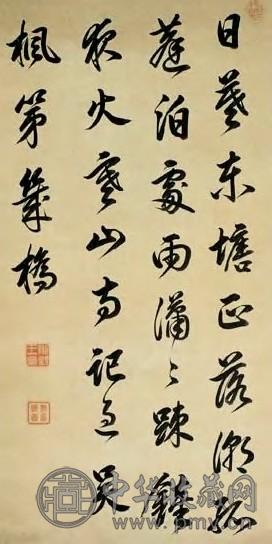 日暮東塘正落潮孤
篷泊處雨瀟〻踈鐘
夜火寒山寺記過吳
楓第幾橋
中华收藏网